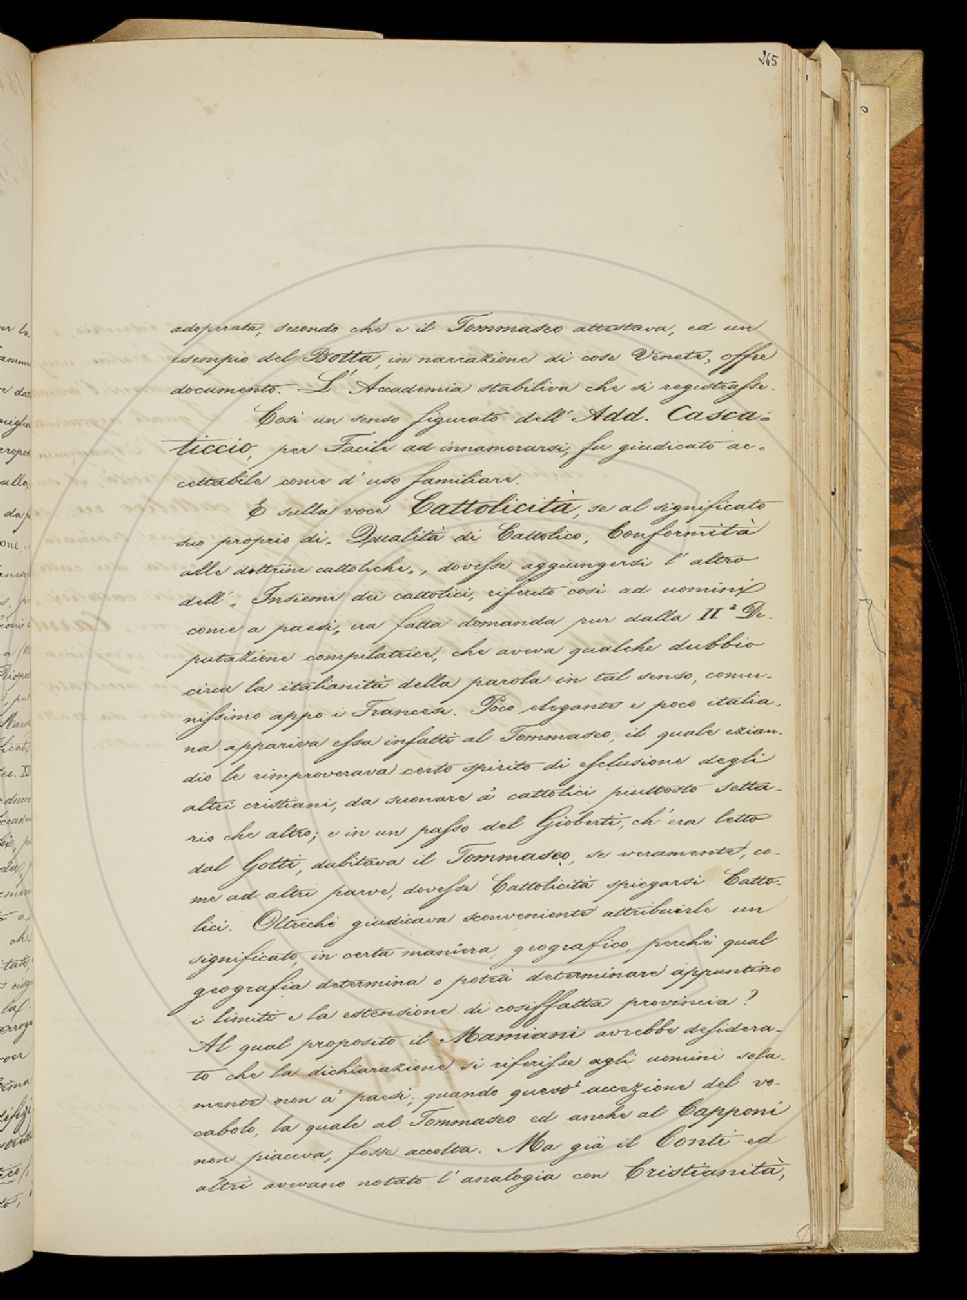 265
adoperata, secondo che e il Tommaseo attestava, ed un
esempio del Botta, in narrazione di cose Venete, offre
documento. L'Accademia stabiliva che si registrasse.
Così un senso figurato dell'Add. Casca=
ticcio, per Facile ad innamorarsi, fu giudicato ac-
cettabile come d'uso familiare.
E sulla voce Cattolicità, se al significato
suo proprio di „ Qualità di Cattolico, Conformità
alle dottrine cattoliche „, dovesse aggiungersi l'altro
dell' „ Insieme dei cattolici, riferito così ad uomini
come a paesi, era fatta domanda pur dalla IIª De-
putazione compilatrice, che aveva qualche dubbio
circa la italianità della parola in tal senso, comu-
nissimo appo i Francesi. Poco elegante e poco italia-
na appariva essa infatti al Tommaseo, il quale ezian-
dio le rimproverava certo spirito di esclusione degli
altri cristiani, da suonare a' cattolici piuttosto setta-
rio che altro; e in un passo del Gioberti, ch'era letto
dal Gotti, dubitava il Tommaseo, se veramente, co-
me ad altri parve, dovesse Cattolicità spiegarsi Catto-
lici. Oltrechè giudicava sconveniente attribuirle un
significato, in certa maniera, geografico, perchè qual
geografia determina o potrà determinare appuntino
i limiti e la estensione di cosiffatta provincia?
Al qual proposito il Mamiani avrebbe desidera-
to che la dichiarazione si riferisse agli uomini sola-
mente non a' paesi; quando quest'accezione del vo-
cabolo, la quale al Tommaseo ed anche al Capponi
non piaceva, fosse accolta. Ma già il Conti ed
altri avevano notato l'analogia con Cristianità,